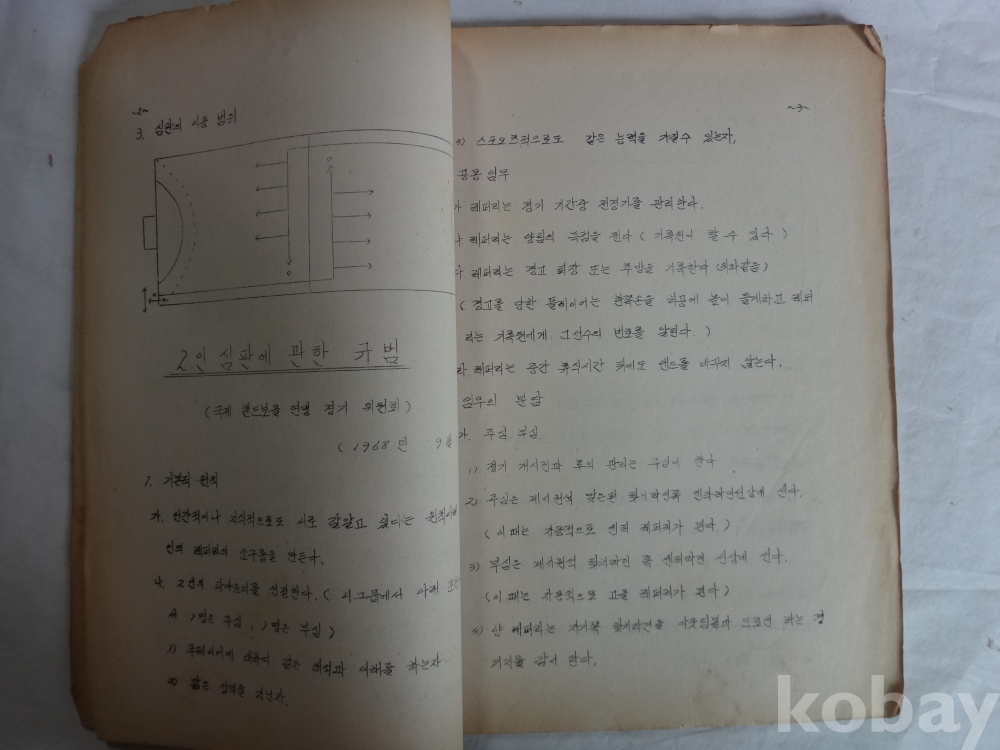 ~2~
3. 심판의 이동 범위
2인 심판에 관한 규범
(국제 핸드보올 연맹 경기 위원회)
(1968년 9월
1. 기본적 원칙
가. 인간적이나 지식적으로도 서로 같알고 있다는 원칙
인의 레퍼리의 소구룹을 만든다.
나. 2인의 파아트너를 선정한다. (이그룹에서 아퍼
서 1명은 주심, 1명은 부심)
1) 대해서 같은 해석과 이해를 하는자
2) 같은 성격을 가진자.
~3~
3) 스포오츠적으로도 같은 능력을 가질수 있는자,
공통 임무
가 레퍼리는 경기 기간중 전경기를 관리한다.
나 레퍼리는 양팀의 득점을 한다 (기록원이 할 수 있다)
다 레퍼리는 경고 퇴장 또는 추방을 기록한다 (위와같음)
(경고를 당한 플레이어는 한쪽손을 허공에 높이 들게하고 레퍼
리는 기록원에게 그선수의 번호를 알린다.)
라 레퍼리는 중간 휴식시간 뒤에도 엔드를 바꾸지 않는다.
임무의 분담
가. 주심 부심
1) 경기 개시전과 후의 관리는 주심이 한다
2) 주심은 제서원의 맞은편 선다.
(이때는 자동적으로 센터 레퍼리가 된다.)
3) 부심은 제서원의 쪽 선다.
(이때는 자동적으로 고올 레퍼리가 된다)
4) 산 레퍼리는 자기쪽 드로인 하는 경
기자를 감시 한다.
kobay